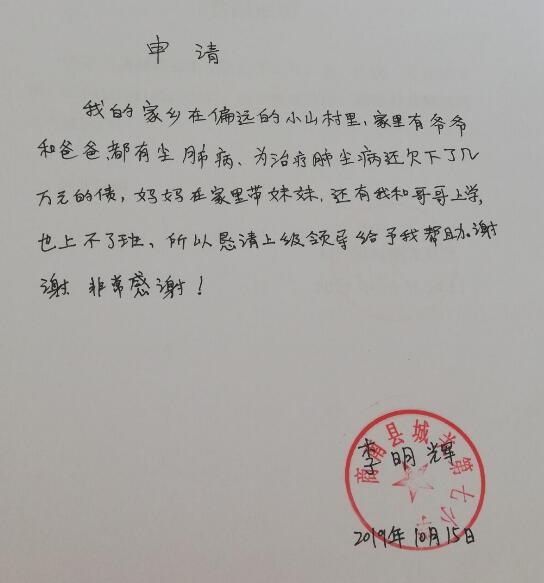 申 请
我的家乡在偏远的小山村里，家里有爷爷
和爸爸都有尘肺病、为治疗肺尘病还欠下了几
万元的债，妈妈在家里带妹妹，还有我和哥哥上学，
也上不了班、所以恳请上级领导给予我帮助。谢
谢 非常感谢！
商南县城关第七小学
李明辉
2019年10月15日